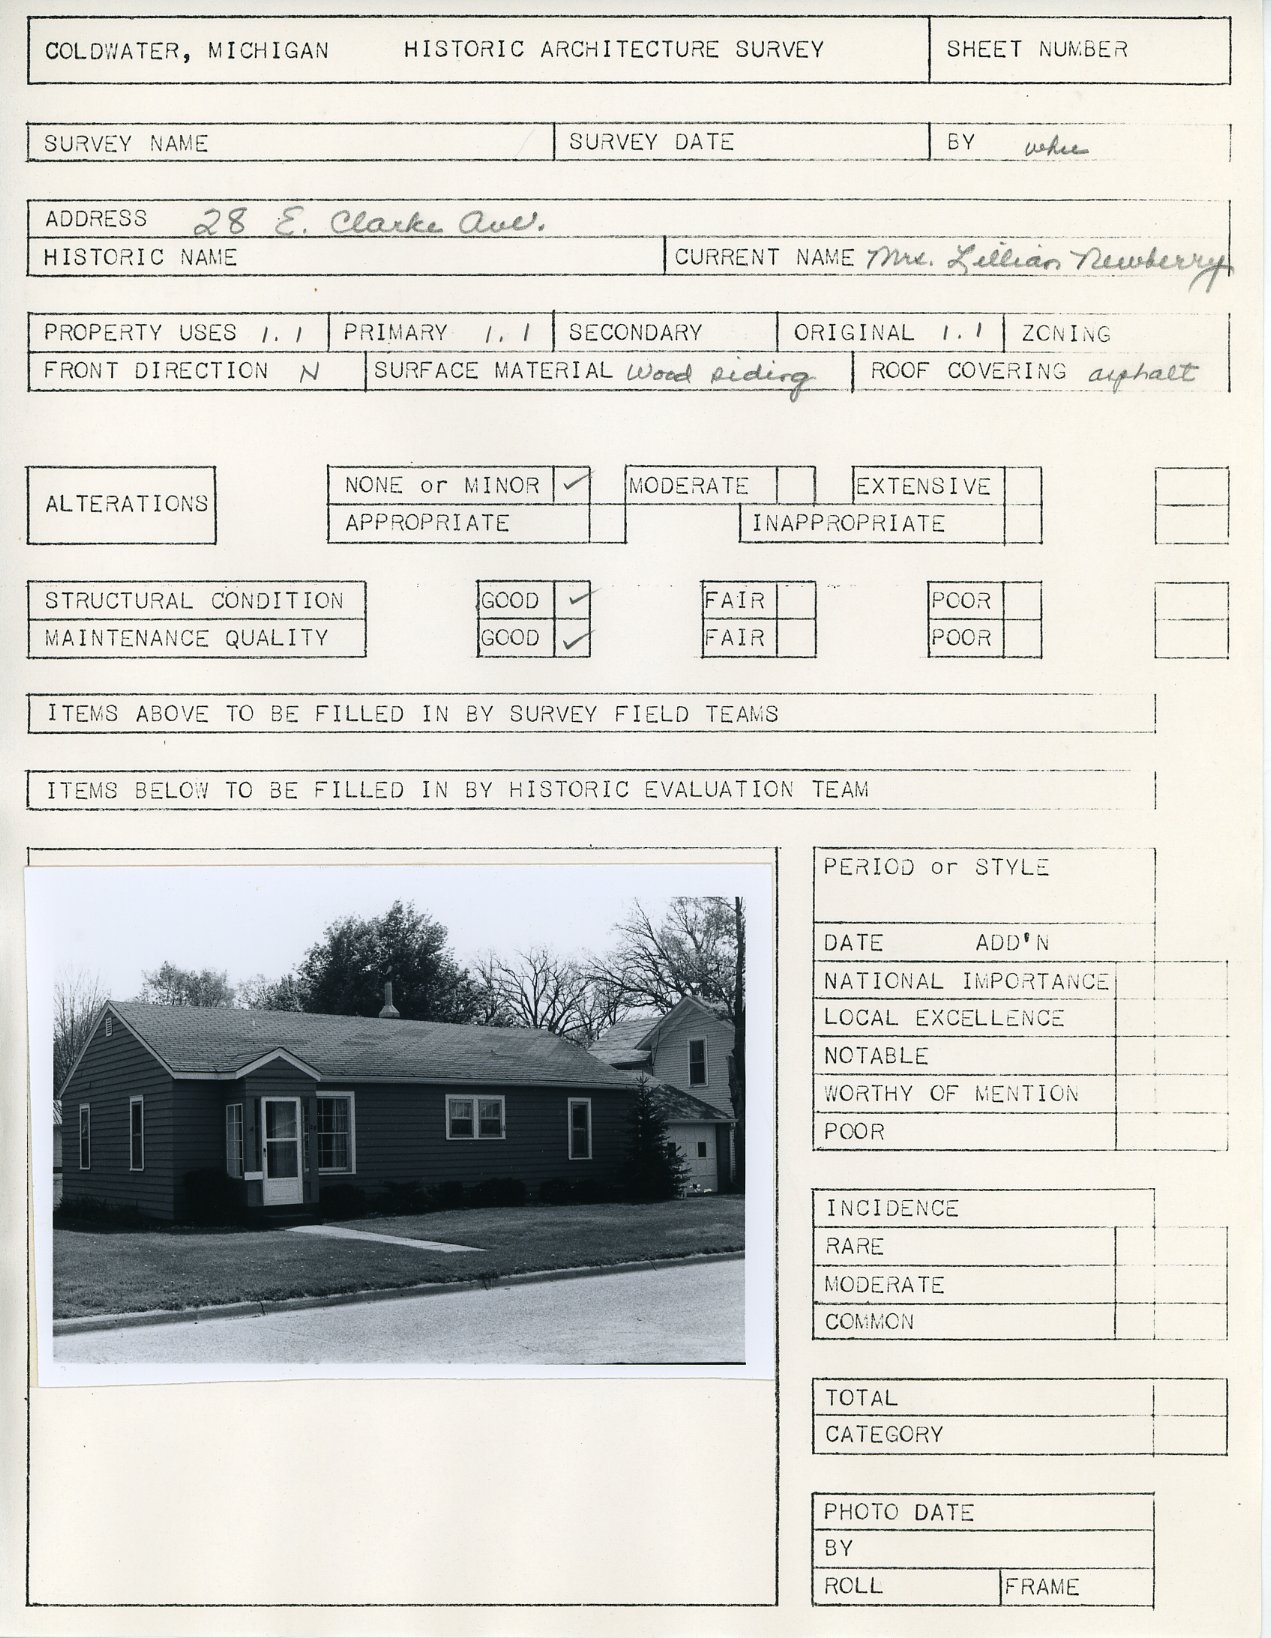 COLDWATER, MICHIGAN HISTORIC ARCHITECTURE SURVEY SHEET NUMBER
SURVEY NAME SURVEY DATE BY
ADDRESS 28 E. Clarke Ave.
HISTORIC NAME CURRENT NAME Mrs. Lillian Newberry
PROPERTY USES 1.1 PRIMARY 1.1 SECONDARY ORIGINAL 1.1 ZONING
FRONT DIRECTION N SURFACE MATERIAL Wood siding ROOF COVERING asphalt
ALTERATIONS
NONE or MINOR ✓ MODERATE EXTENSIVE
APPROPRIATE INAPPROPRIATE
STRUCTURAL CONDITION GOOD ✓ FAIR POOR
MAINTENANCE QUALITY GOOD ✓ FAIR POOR
ITEMS ABOVE TO BE FILLED IN BY SURVEY FIELD TEAMS
ITEMS BELOW TO BE FILLED IN BY HISTORIC EVALUATION TEAM
PERIOD or STYLE
DATE ADD'N
NATIONAL IMPORTANCE
LOCAL EXCELLENCE
NOTABLE
WORTHY OF MENTION
POOR
INCIDENCE
RARE
MODERATE
COMMON
TOTAL
CATEGORY
PHOTO DATE
BY
ROLL FRAME